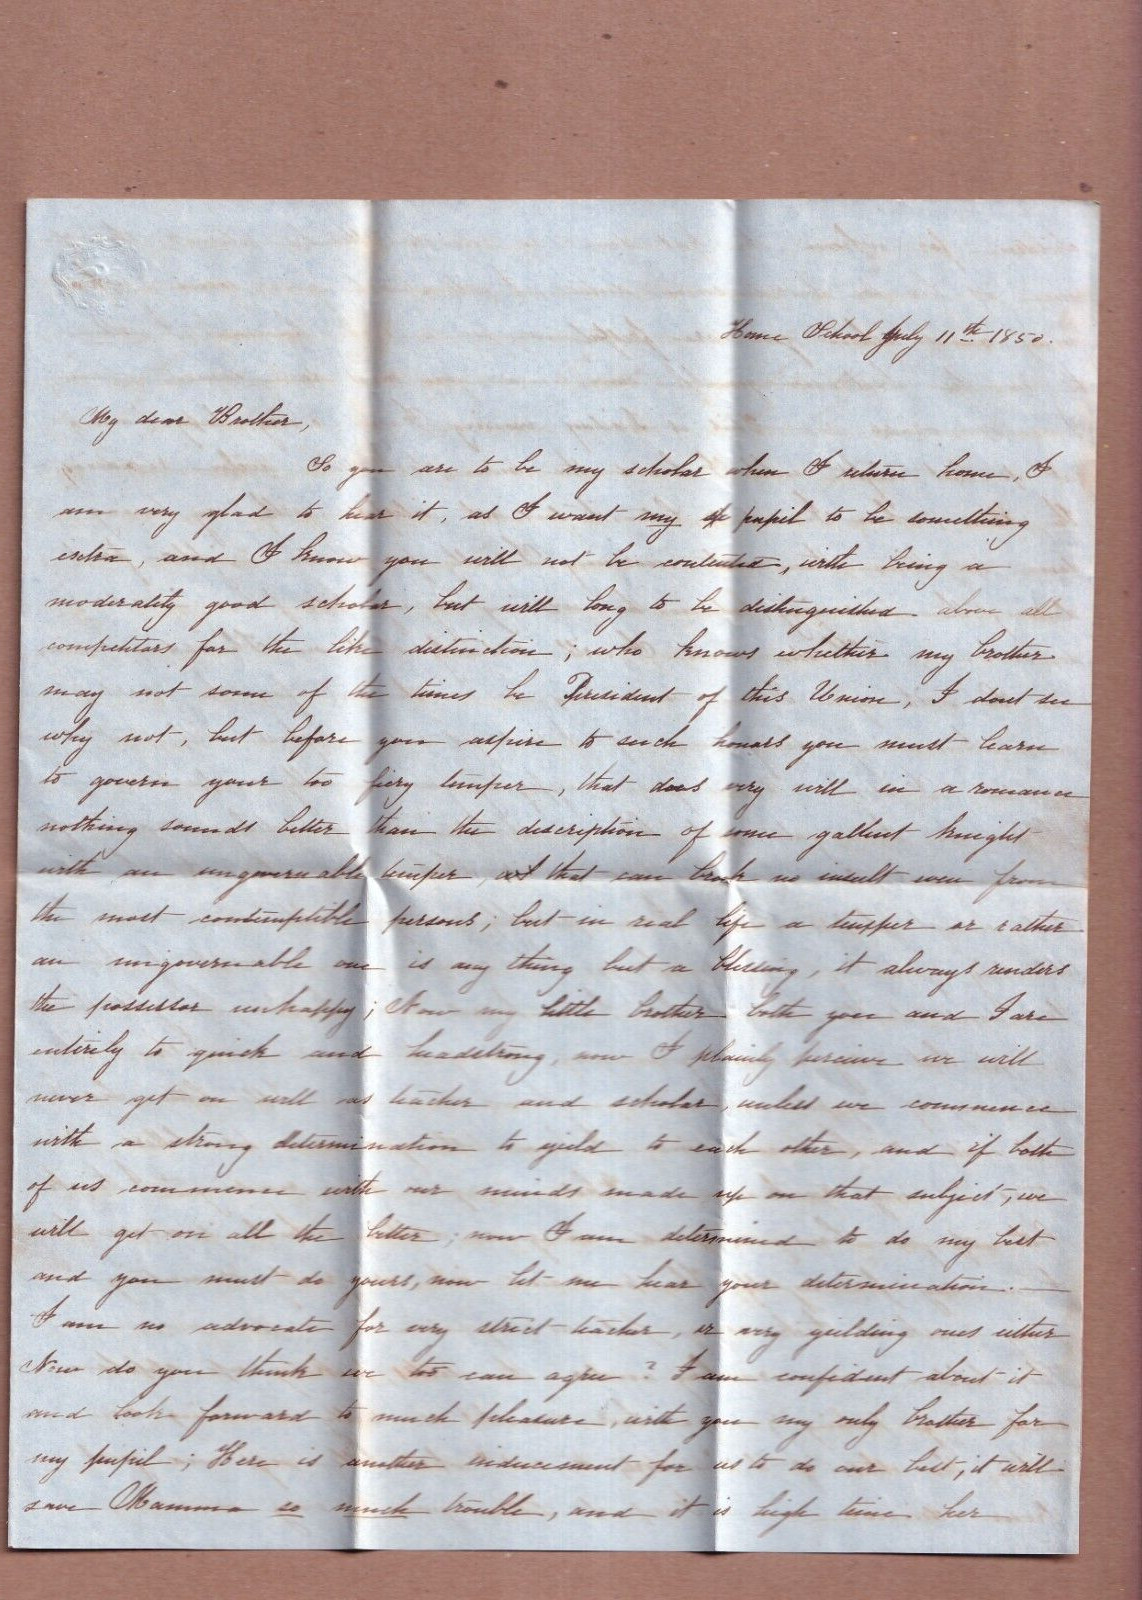 Home School July 11th 1850.
My dear Brother,
So you are to be my scholar when I return home, I
am very glad to hear it, as I want my pupil to be something
extra, and I know you will not be contented, with being a
moderatly good scholar, but will long to be distinguished above all
competitors for the like distinction; who knows whether my brother
may not some of the times be President of this Union, I dont see
why not, but before you aspire to such honors you must learn
to govern your too fiery temper, that does very will in a romance
nothing sounds better than the description of some gallent knight
with an ungovernable temper, that can brook no insult even from
the most contemptible persons; but in real life a temper or rather
an ungovernable one is any thing but a blessing, it always renders
the possessor unhappy; Now my little brother both you and I are
entirely to quick and headstrong, now I plainly perceive we will
never get on well as teacher and scholar, unless we commence
with a strong determination to yield to each other, and if both
of us commence with our minds made up on that subject, we
will get on all the better; now I am determined to do my best
and you must do yours, now let me hear your determination. —
I am no advocate for very strict teacher, or very yielding ones either
Now do you think we too can agree? I am confident about it
and look forward to much pleasure, with you my only brother for
my pupil; Here is another inducement for us to do our best, it will
save Mamma so much trouble, and it is high time her